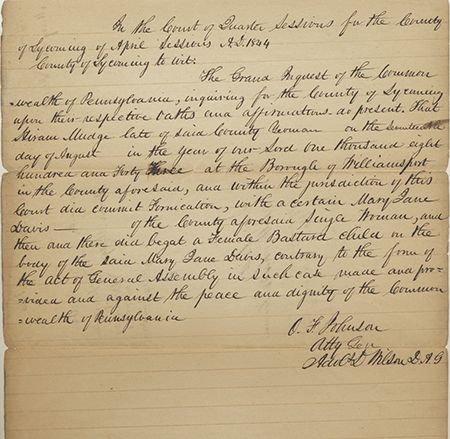 In the Court of Quarter Sessions for the County
of Lycoming of April Sessions A.D. 1844
County of Lycoming to wit:
The Grand Inquest of the Common
=wealth of Pennsylvania, inquiring for the County of Lycoming
upon their respective oaths and affirmations do present. That
Hiram Mudge late of said County Yeoman on the
day of August in the year of our Lord one thousand eight
hundred and Forty Three at the Borough of Williamsport
in the County aforesaid, and within the jurisdiction of this
Court did commit Fornication, with a certain Mary Jane
Davis — of the County aforesaid Single Woman, and
then and there did beget a Female Bastard child on the
body of the said Mary Jane Davis, contrary to the form of
the act of General Assembly in such case made and pro=
=vided and against the peace and dignity of the Common
=wealth of Pennsylvania
O. F. Johnson
Atty Gen
Wilson D.A.G